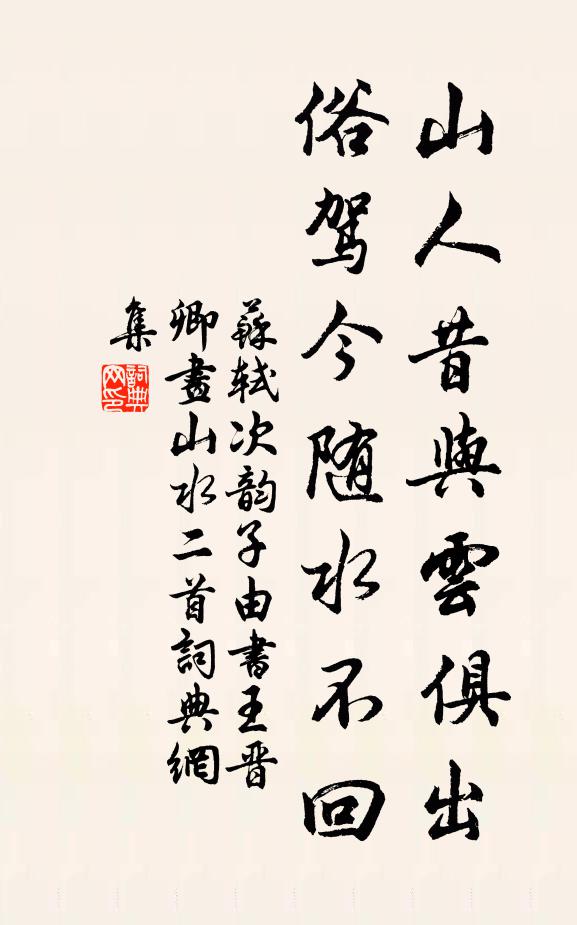 山人昔與雲俱出
俗駕今随水不回
蘇軾次韵子由書王晋
卿畫山水二首詞典網
集
詞典
网印